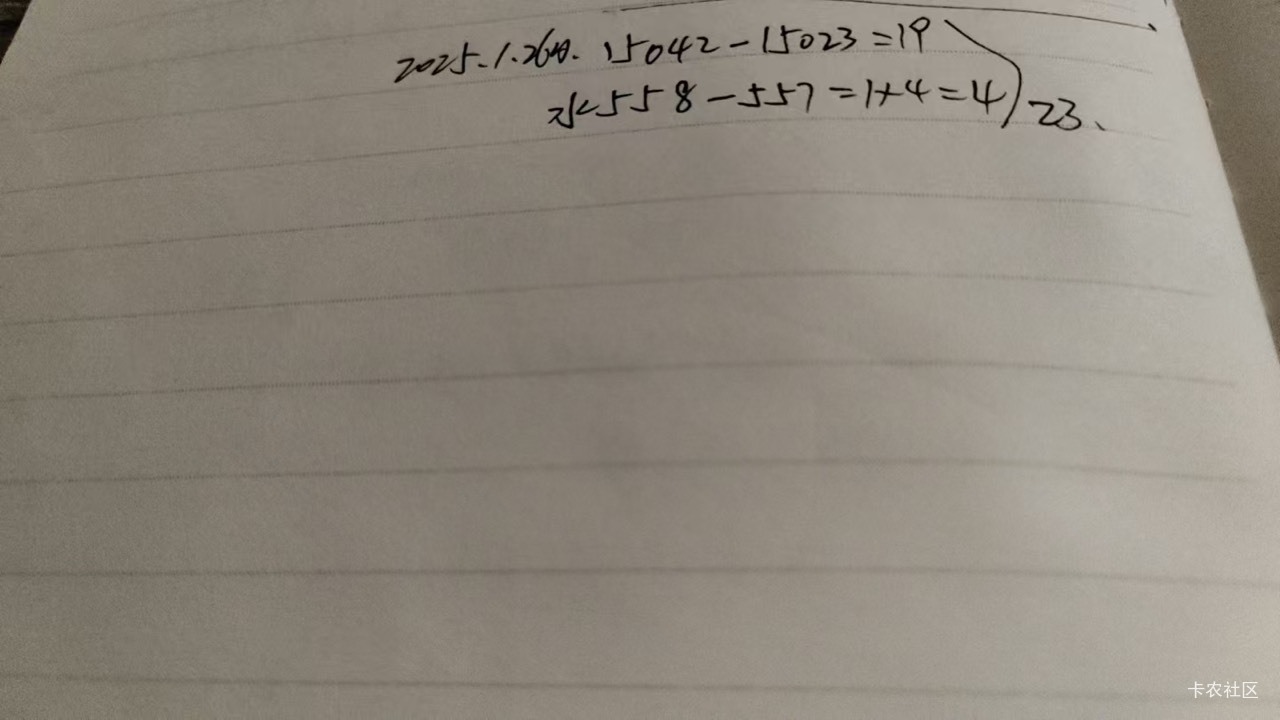 2025.1.26日. 15042-15023=19
水558-557=1×4=4 23、
卡农社区